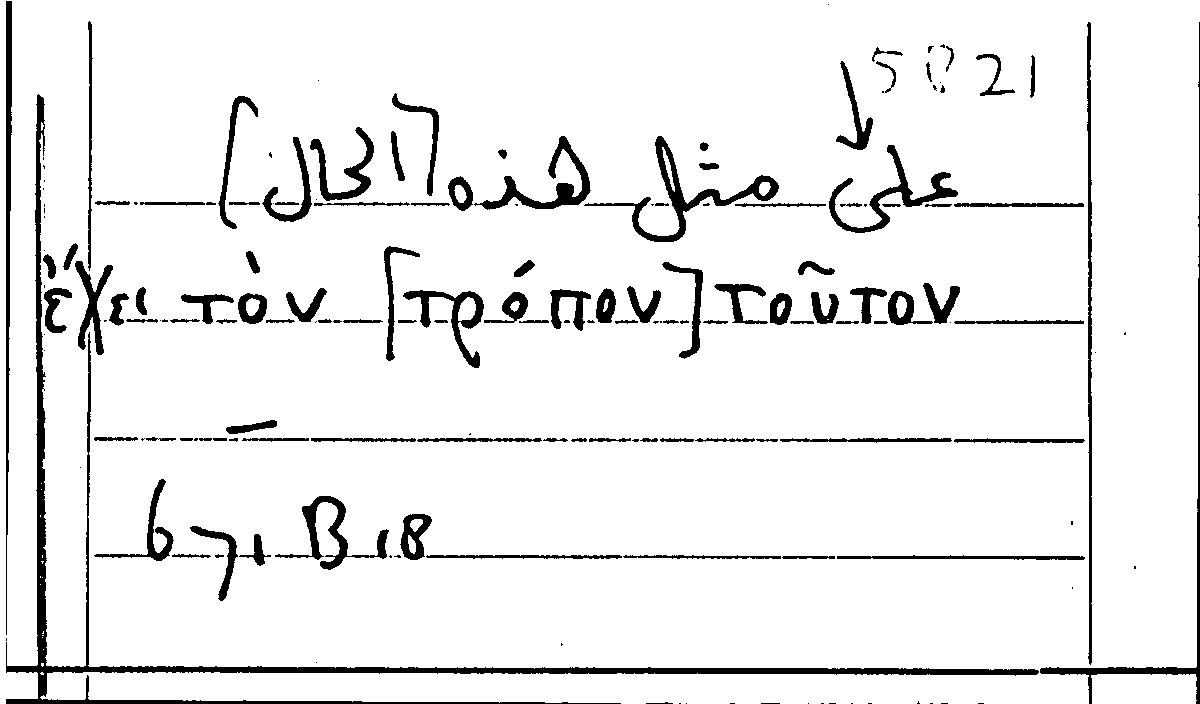 5821
على مثل هذه [الحال]
ἔχει τὸν [τρόπον] τοῦτον
—
671, B 18